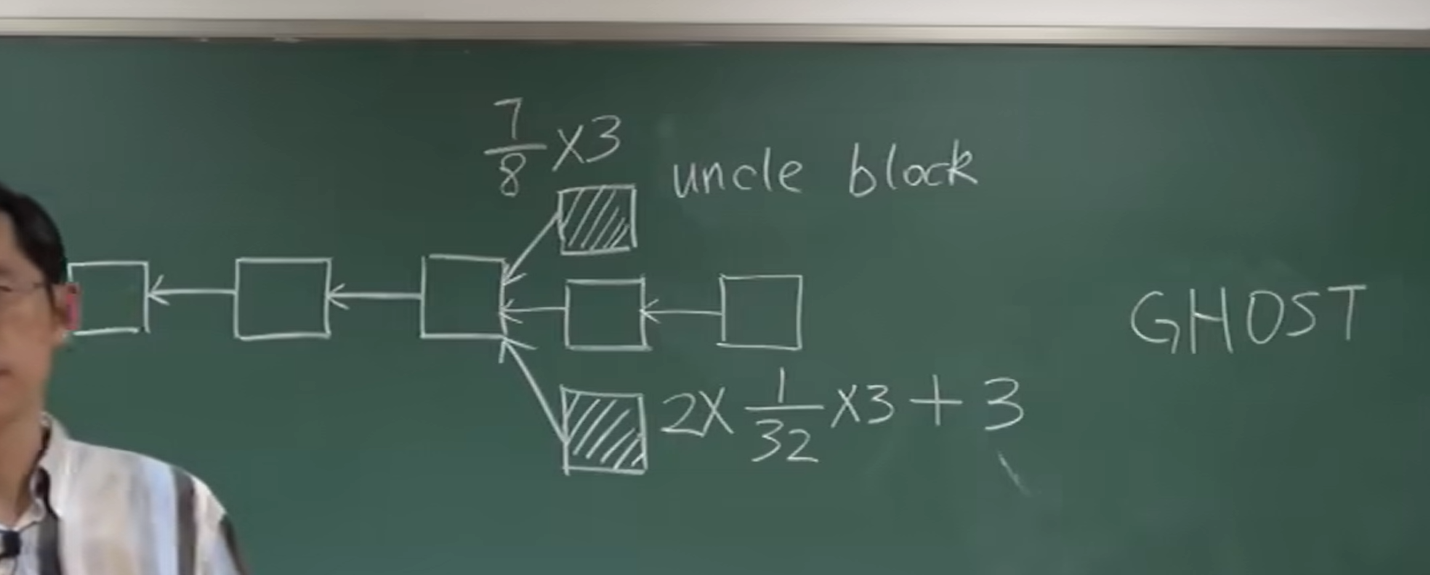 7/8 ×3
uncle block
GHOST
2× 1/32 ×3 + 3